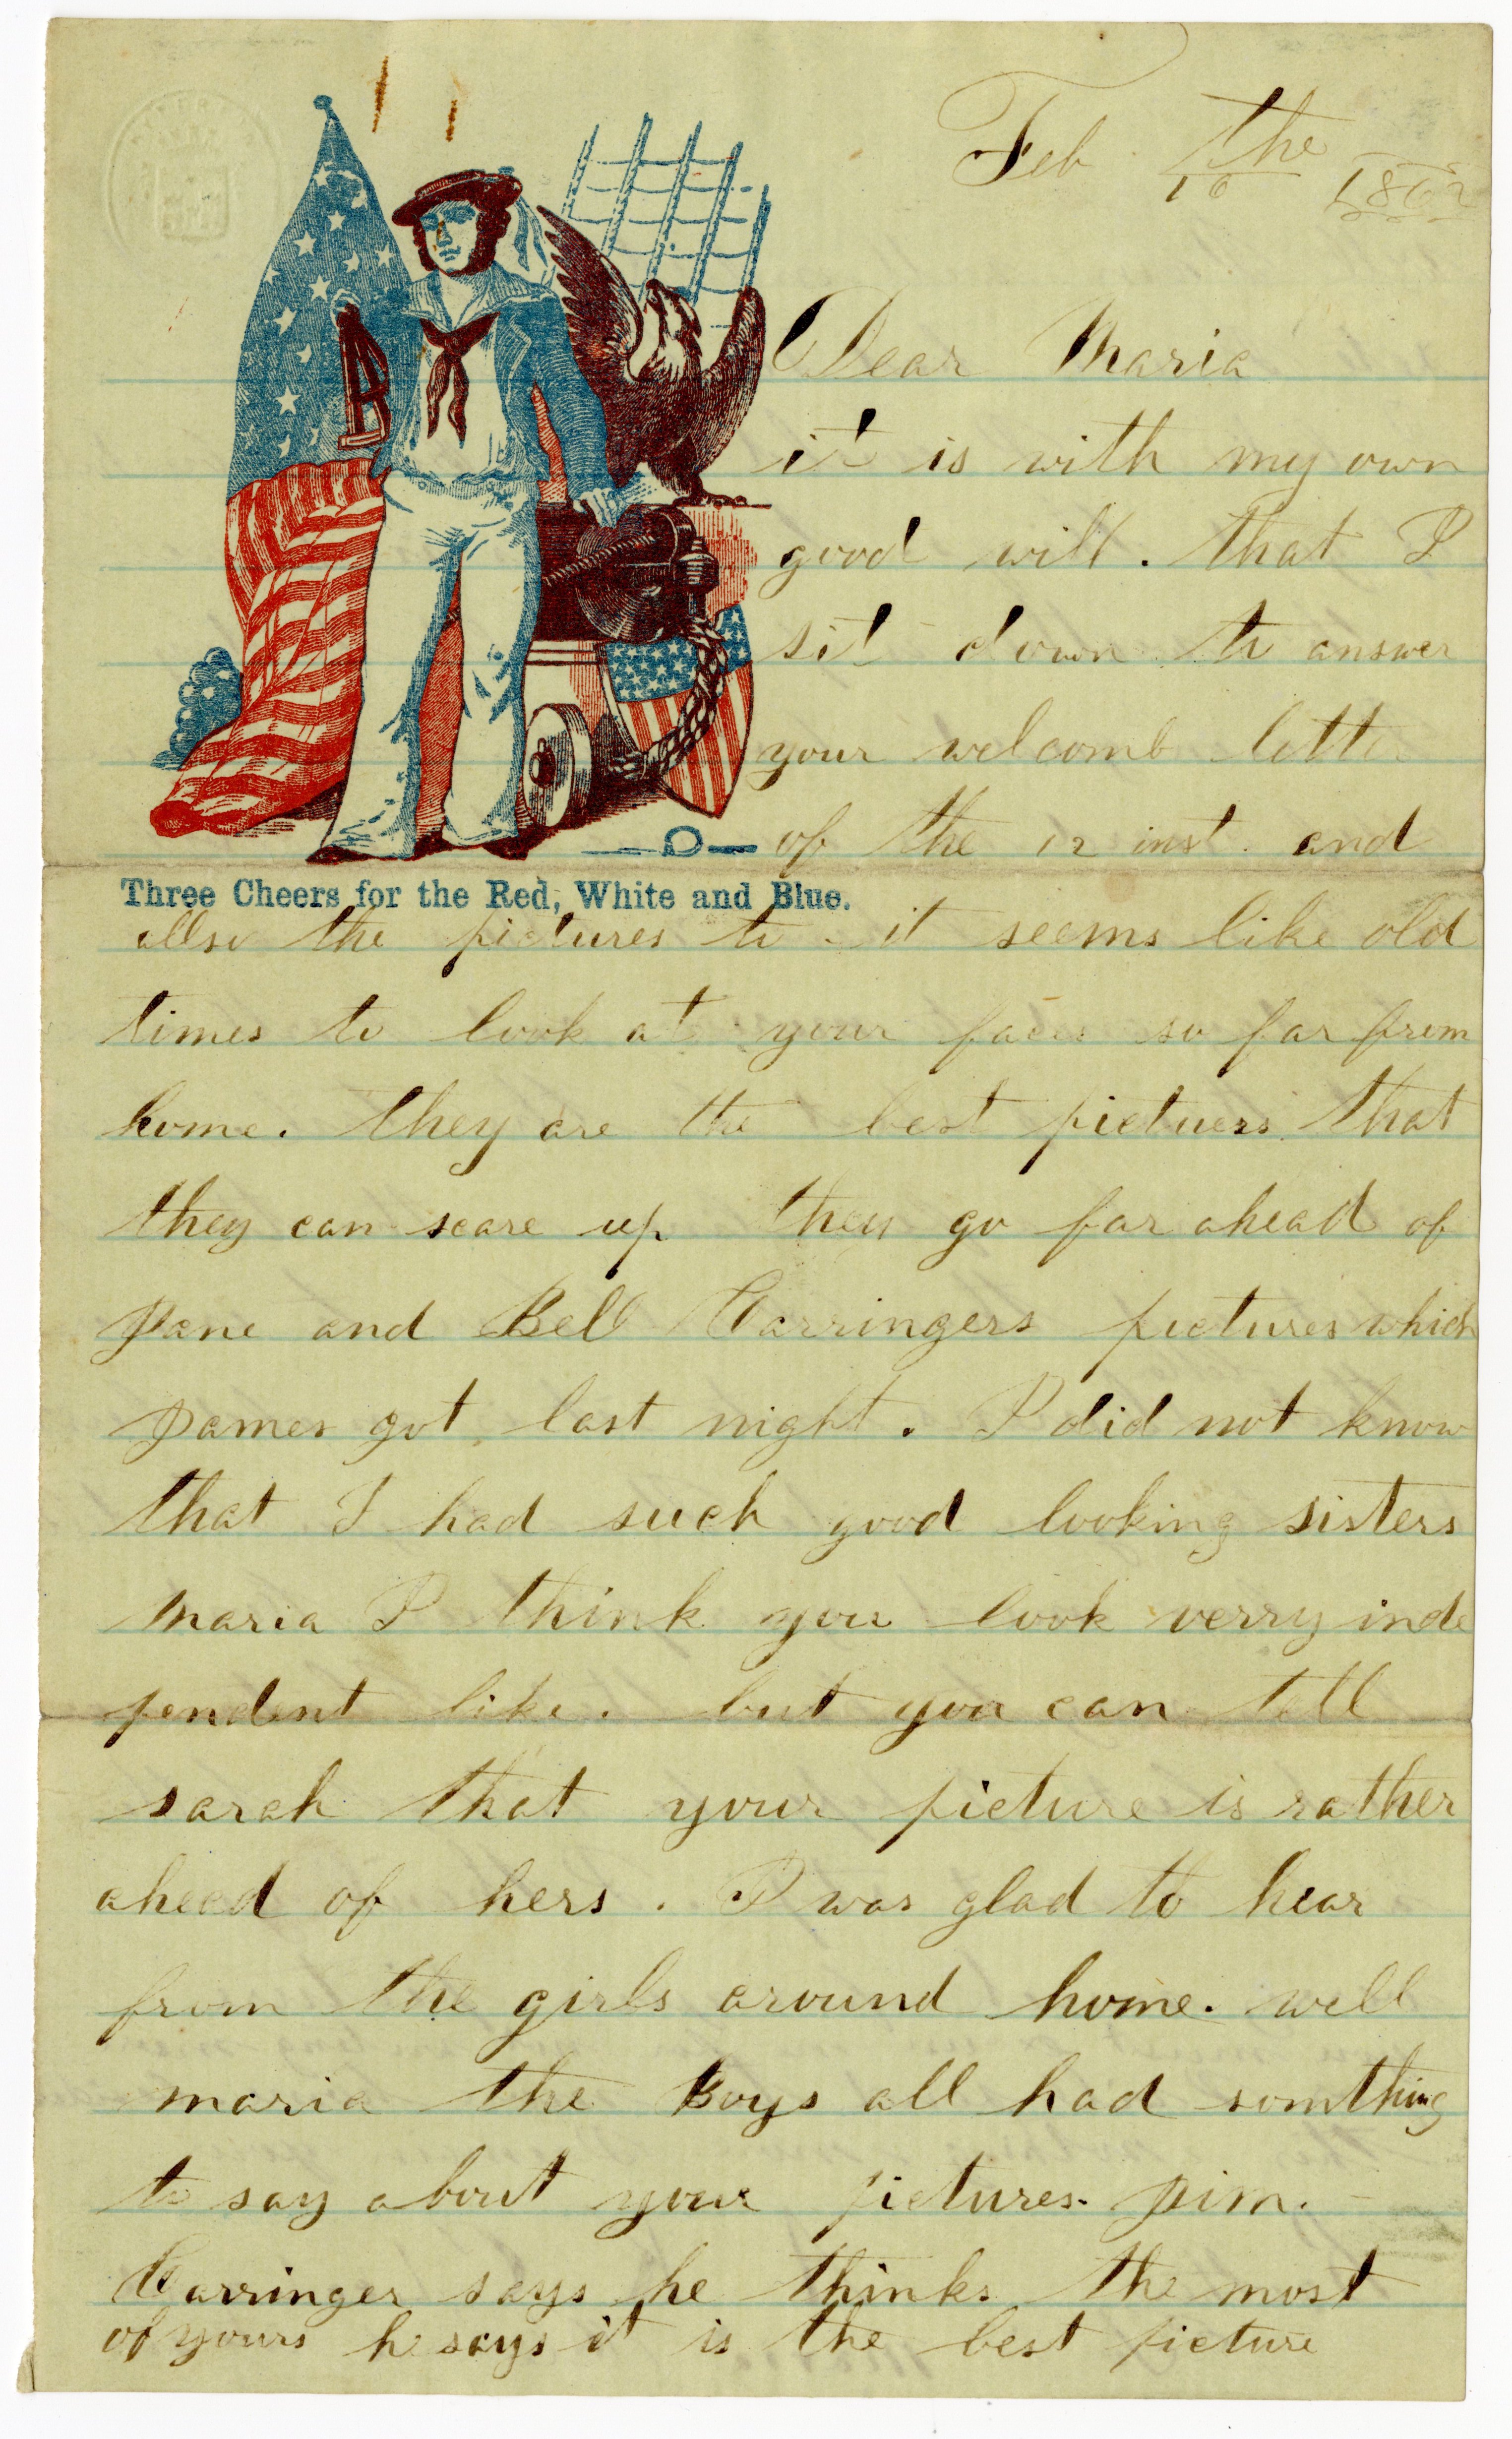 Feb the 16 1862
Dear Maria
it is with my own
good will. that I
sit down to answer
your welcomb letter
of the 12 inst. and
Three Cheers for the Red, White and Blue.
allso the pictures to - it seems like old
times to look at your faces so far from
home. they are the best pictuers that
they can scare up they go far ahead of
Jane and Bell Carringers pictures which
James got last night. I did not know
that I had such good looking sisters
maria I think you look verry inde
pendent like. but you can tell
sarah that your picture is rather
ahead of hers. I was glad to hear
from the girls around home. well
maria the Boys all had somthing
to say about your pictures. Jim.
Carringer says he thinks the most
of yours he says it is the best picture